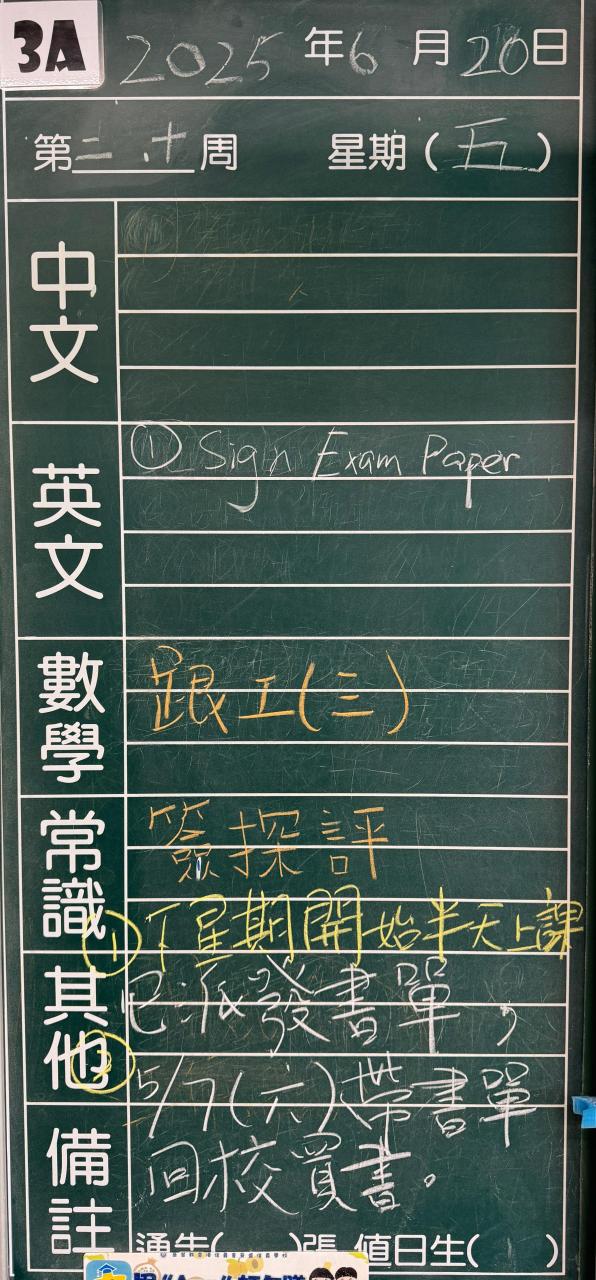 3A
2025年6月20日
第二十周 星期(五)
中文
英文
① Sign Exam Paper
數學
跟工(三)
常識
簽探評
①下星期開始半天上課
其他
②已派發書單,
5/7(六)帶書單
備註
回校買書。
通告( )張 值日生( )